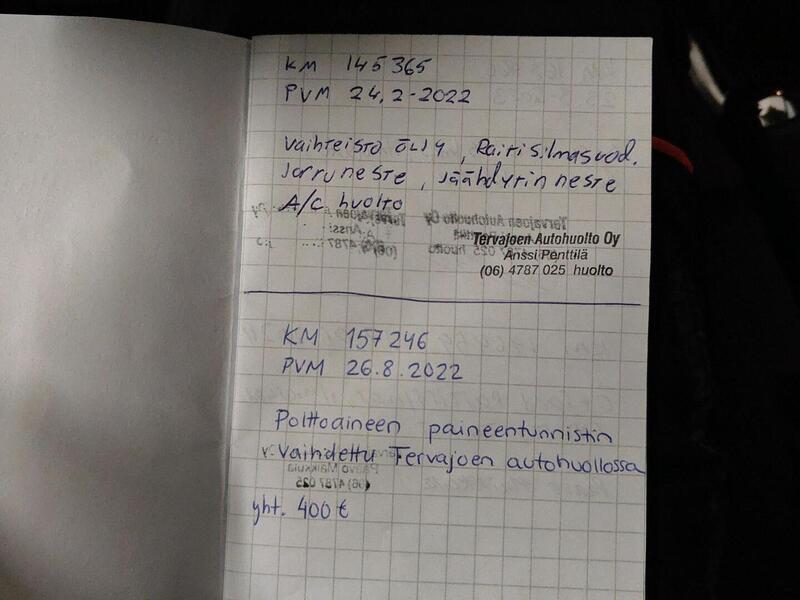 KM 145365
PVM 24.2-2022
Vaihteisto öljy, Raitisilmasuod.
Jarruneste, Jäähdytin neste
A/C huolto
Tervajoen Autohuolto Oy
Anssi Penttilä
(06) 4787 025 huolto
KM 157246
PVM 26.8.2022
Polttoaineen paineentunnistin
vaihdettu Tervajoen autohuollossa
yht. 400 €